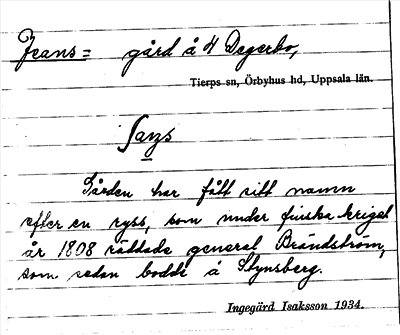 Jeans= gård å 4 Degerbo,
Tierps sn, Örbyhus hd, Uppsala län.
Gården har fått sitt namn
efter en ryss, som under finska kriget
år 1808 räddade general Brändström,
som sedan bodde å Stynsberg.
Ingegärd Isaksson 1934.